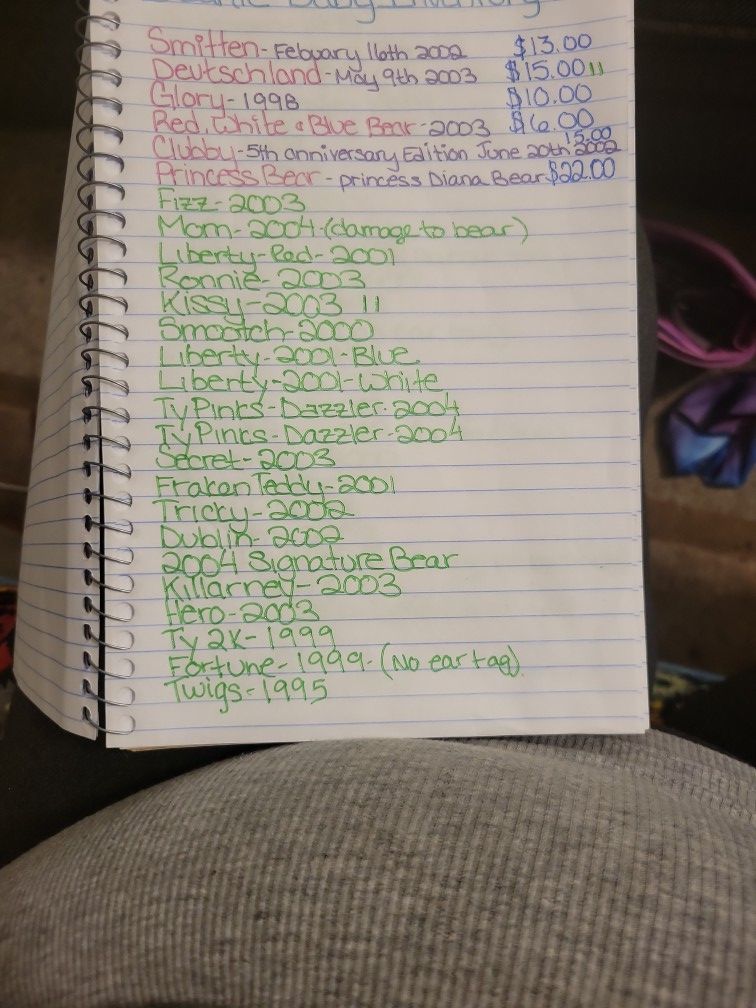 Baby Inventory
Smitten - Febuary 16th 2002 $13.00
Deutschland - May 9th 2003 $15.00 11
Glory - 1998 $10.00
Red, White & Blue Bear - 2003 $6.00
15.00
Clubby - 5th anniversary Edition June 20th 2002
Princess Bear - princess Diana Bear $22.00
Fizz - 2003
Mom - 2004 - (damage to bear)
Liberty - Red - 2001
Ronnie - 2003
Kissy - 2003 11
Smootch - 2000
Liberty - 2001 - Blue
Liberty - 2001 - White
Ty Pinks - Dazzler - 2004
Ty Pinks - Dazzler - 2004
Secret - 2003
Frakan Teddy - 2001
Tricky - 2002
Dublin - 2002
2004 Signature Bear
Killarney - 2003
Hero - 2003
Ty 2K - 1999
Fortune - 1999 - (No ear tag)
Twigs - 1995